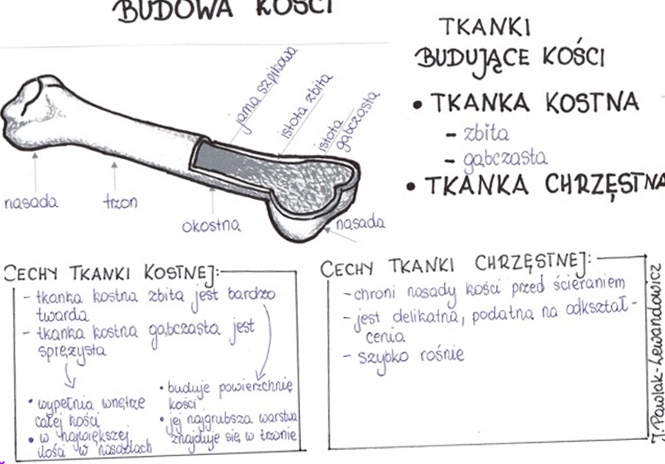 BUDOWA KOŚCI
jama szpikowa
istota zbita
istota
gąbczasta
nasada
trzon
okostna
nasada
TKANKI
BUDUJĄCE KOŚCI
• TKANKA KOSTNA
- zbita
- gąbczasta
• TKANKA CHRZĘSTNA
CECHY TKANKI KOSTNEJ:
- tkanka kostna zbita jest bardzo
twarda
- tkanka kostna gąbczasta jest
sprężysta
• wypełnia wnętrze
całej kości
• w największej
ilości w nasadach
• buduje powierzchnię
kości
• jej najgrubsza warstwa
znajduje się w trzonie
CECHY TKANKI CHRZĘSTNEJ:
- chroni nasady kości przed ścieraniem
- jest delikatna, podatna na odkształ-
cenia
- szybko rośnie
J. Pawlak-Lewandowicz